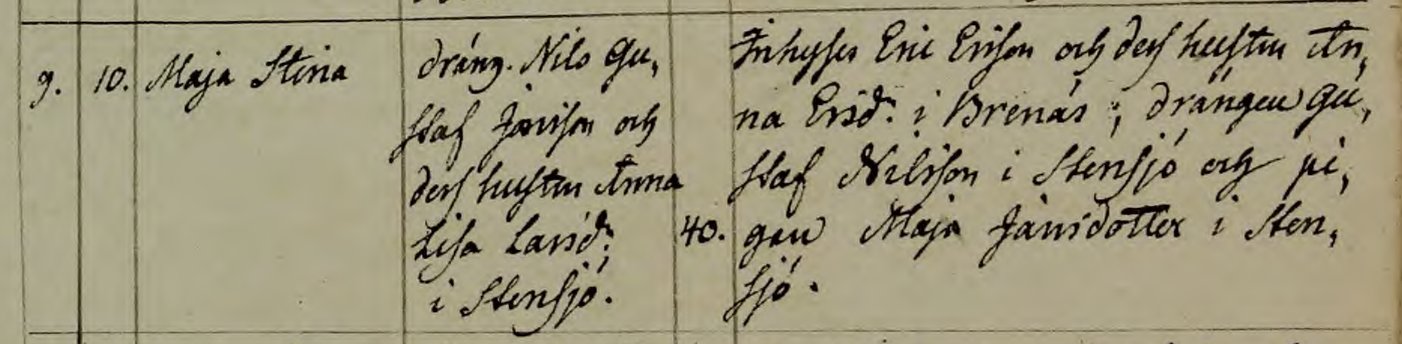 9. 10. Maja Stina
dräng. Nils Gu,
staf Jansson och
dess hustru Anna
Lisa Larsdr
i Stensjö.
40.
Inhyses Eric Ersson och dess hustru An,
na Ersdr: i Brenäs; drängen Gu,
staf Nilsson i Stensjö och pi,
gan Maja Jansdotter i Sten,
sjö.